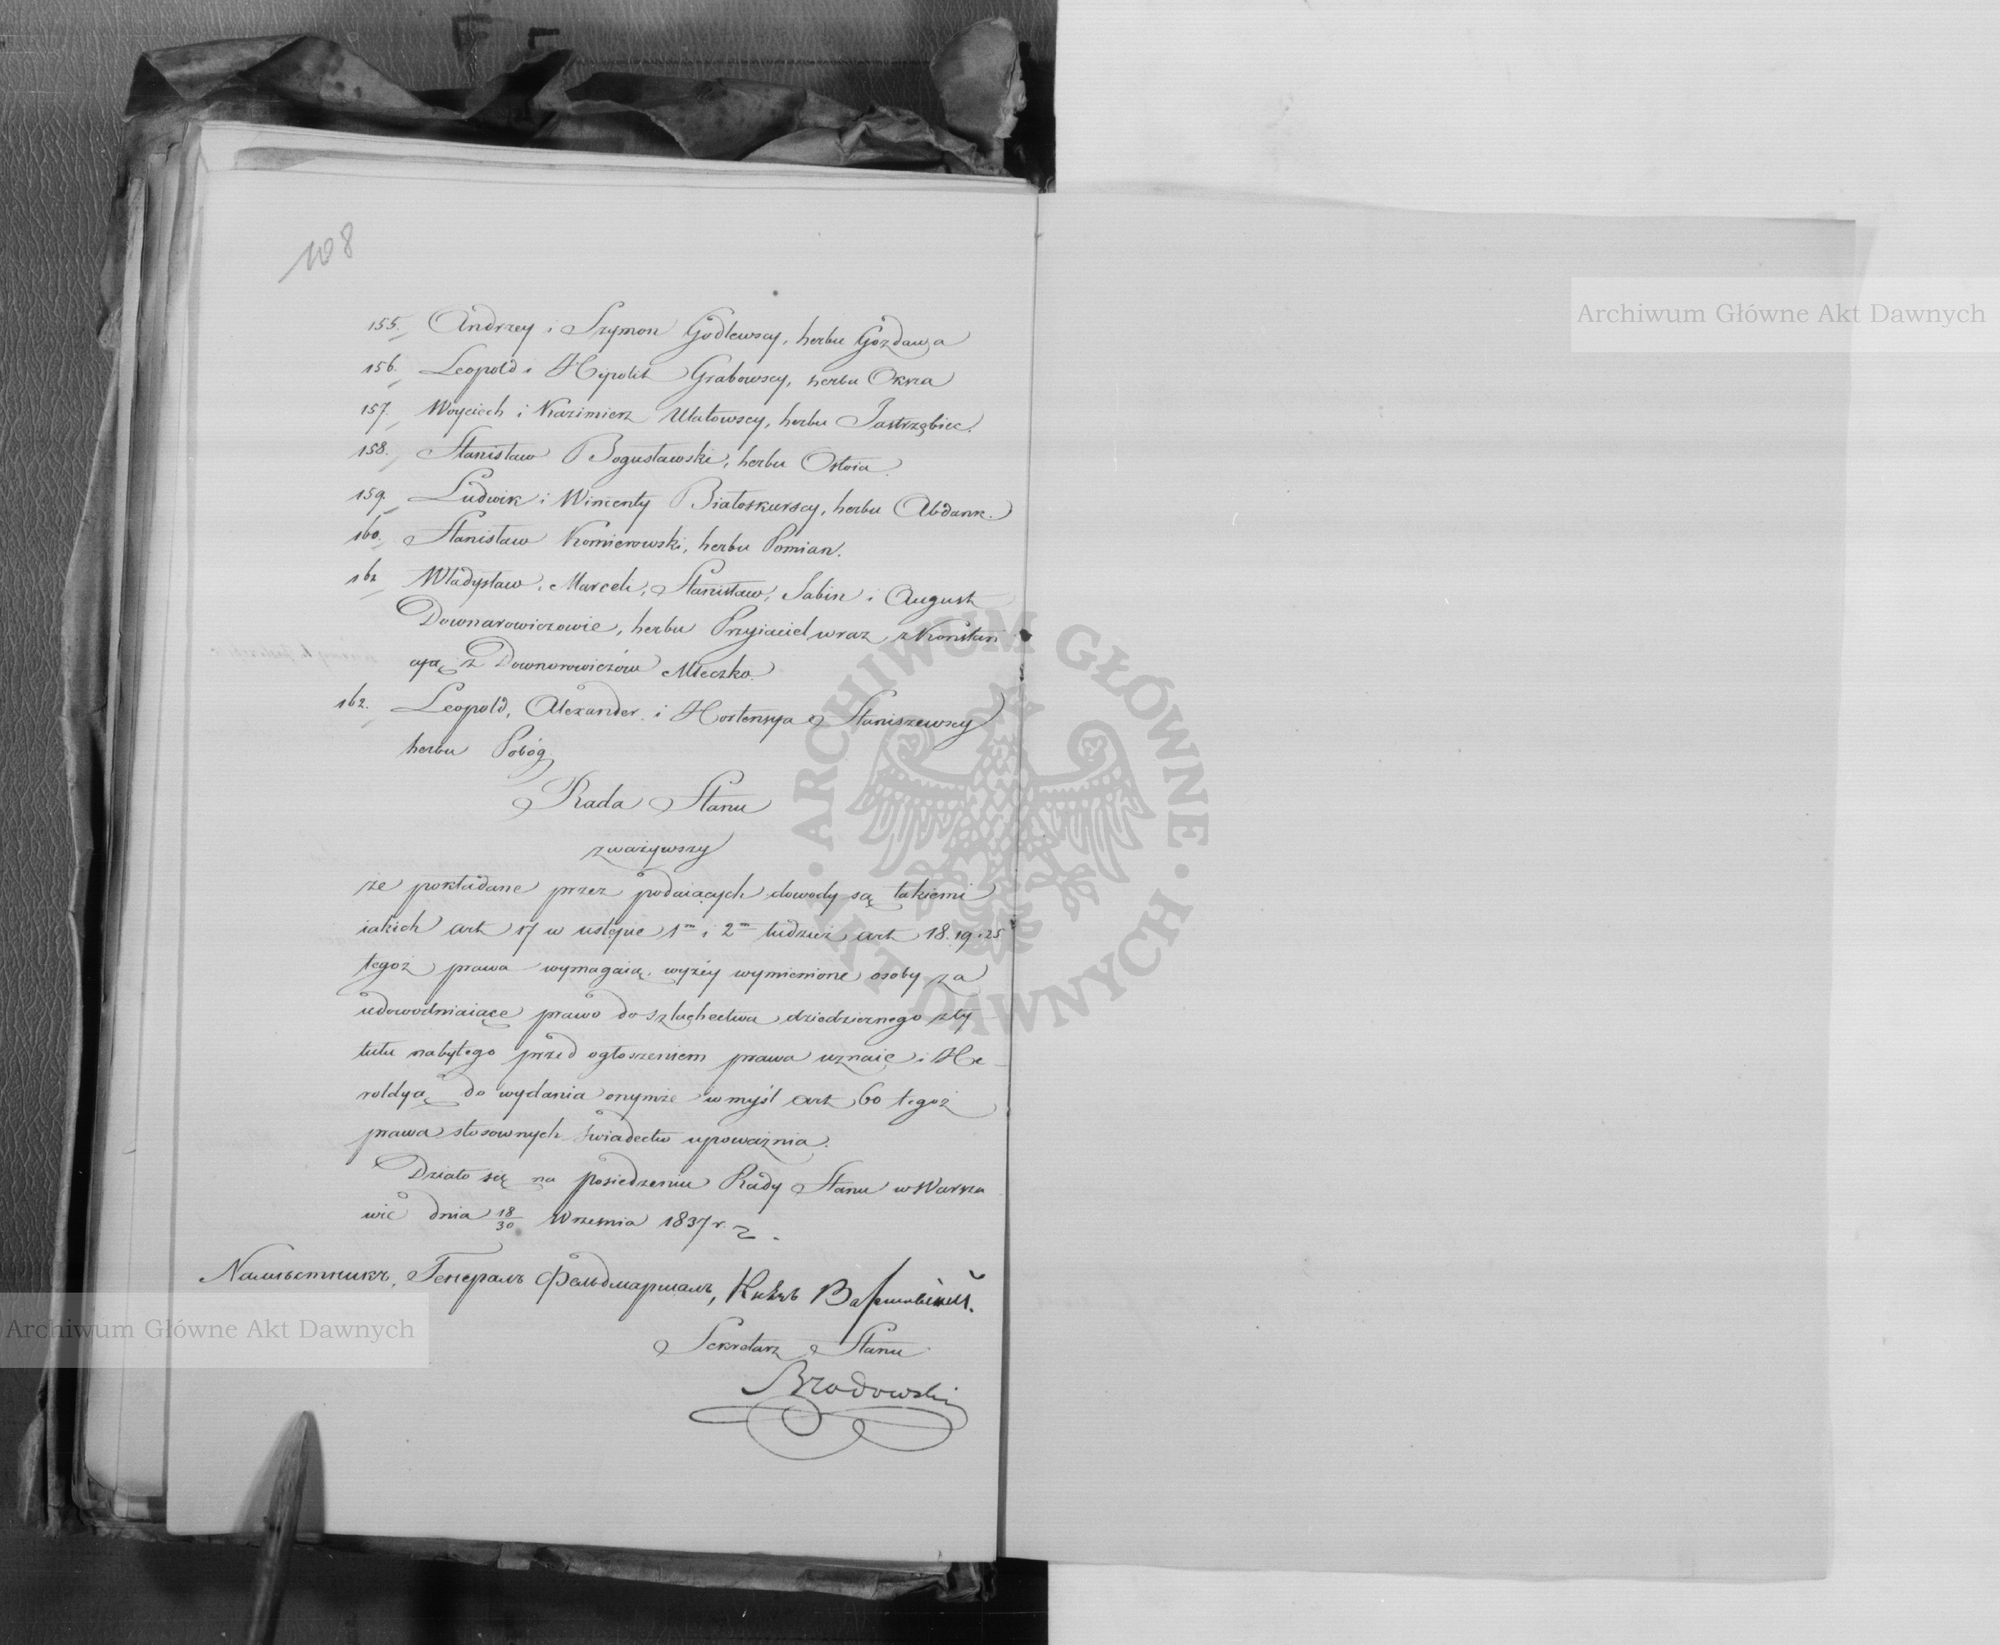 108
155. Andrzey i Szymon Godlewscy, herbu Gozdawa
156. Leopold i Hipolit Grabowscy, herbu Oksza
157. Woyciech i Kazimierz Ułatowscy, herbu Jastrzębiec.
158. Stanisław Bogusławski, herbu Ostoia.
159. Ludwik i Wincenty Białoskurscy, herbu Abdank.
160. Stanisław Komierowski, herbu Pomian.
161 Władysław, Marceli, Stanisław, Sabin i August
Downarowiczowie, herbu Przyiaciel wraz z Konstan
cyą z Downarowiczów Mleczko.
162. Leopold, Alexander i Hortensya Staniszewscy
herbu Pobóg
Rada Stanu
zważywszy
że pokładane przez podaiących dowody są takiemi
iakich art 17 w ustępie 1m i 2m tudzież art 18. 19. i 25
tegoż prawa wymagaią, wyżéy wymienione osoby za
udowodniaiące prawo do szlachectwa dziedzicznego zty
tułu nabytego przed ogłoszeniem prawa uznaie i He-
roldyą do wydania onymże w myśl art 60 tegoż
prawa stosownych świadectw upoważnia.
Działo się na posiedzeniu Rady Stanu w Warsza
wie dnia 18/30 Września 1837 r.
Намѣстникъ, Генералъ Фельдмаршалъ, Князь Варшавскій.
Sekretarz Stanu
Brodowski
Archiwum Główne Akt Dawnych
Archiwum Główne Akt Dawnych
ARCHIWUM GŁÓWNE AKT DAWNYCH